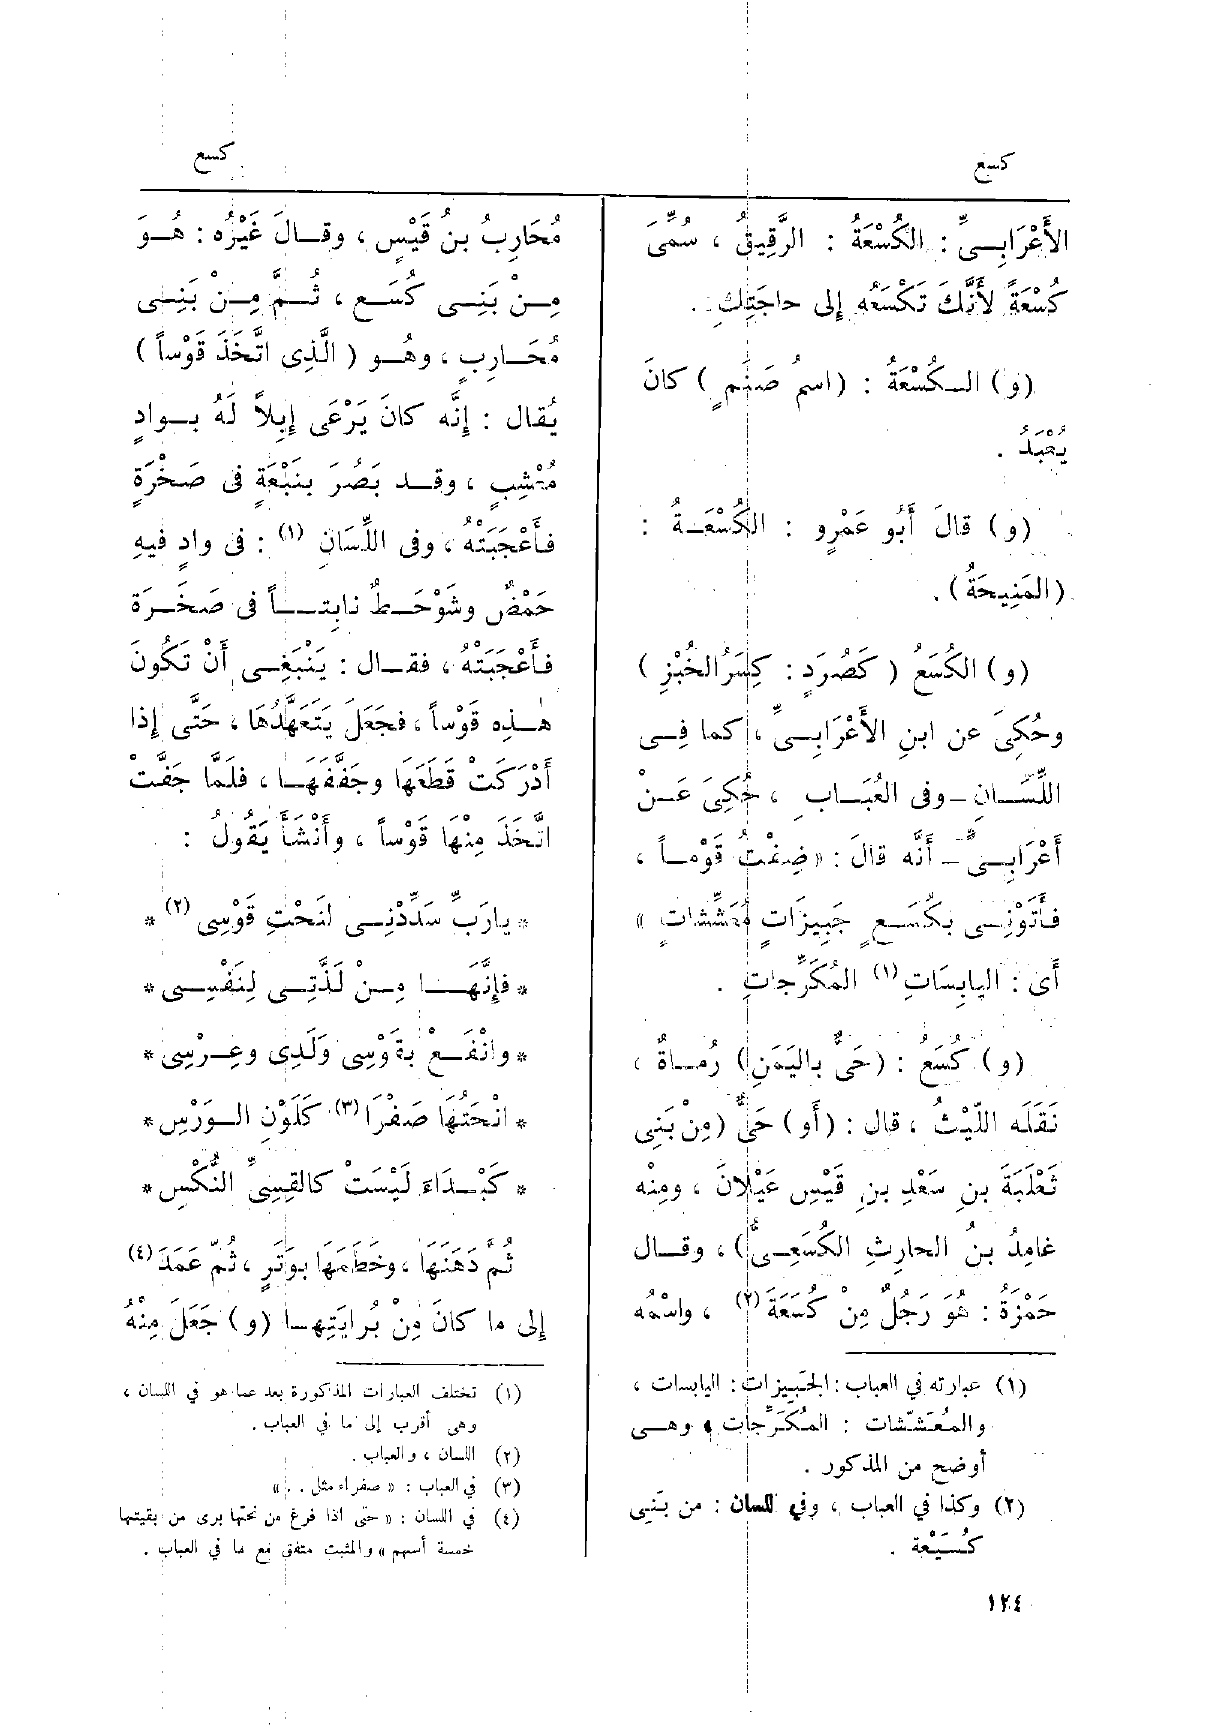 كسع
كسع
الأَعْرَابِىِّ : الكُسْعَةُ : الرَّقِيقُ ، سُمِّىَ
كُسْعَةً لأَنَّكَ تَكْسَعُه إِلى حاجَتِك .
(و) الكُسْعَةُ : (اسمُ صَنَمٍ) كانَ
يُعْبَدُ .
(و) قالَ أَبُو عَمْرٍو : الكُسْعَةُ :
(المَنِيحَةُ) .
(و) الكُسَعُ ( كَصُرَدٍ : كِسَرُ الخُبْزِ )
وحُكِىَ عن ابنِ الأَعْرَابِىِّ ، كما فِى
اللِّسَانِ – وفى العُبَابِ ، حُكِىَ عَنْ
أَعْرَابِىٍّ – أَنَّه قالَ : « ضِفْتُ قَوْماً ،
فأَتَوْنِى بكُسَعٍ جَبِيزَاتٍ مُعَشِّشاتٍ »
أَى : اليابِسَاتِ (١) المُكَرِّجاتِ .
(و) كُسَعُ : (حَىٌّ باليَمَنِ) رُماةٌ ،
نَقَلَه اللَّيْثُ ، قال : (أَو) حَىٌّ (مِنْ بَنِى
ثَعْلَبَةَ بنِ سَعْدِ بنِ قَيْسِ عَيْلانَ ، ومِنْه
غامِدُ بنُ الحارِثِ الكُسَعِىُّ) ، وقال
حَمْزَةُ : هُوَ رَجُلٌ مِنْ كُسَعَةَ (٢) ، واسْمُه
(١) عبارته في العباب : الجَبِيزات : اليابسات ،
والمُعَشّشات : المُكَرِّجات ، وهى
أوضح من المذكور .
(٢) وكذا في العباب ، وفي اللسان : من بَنِى
كُسَيْعة .
مُحَارِبُ بنُ قَيْسٍ ، وقالَ غَيْرُه : هُوَ
مِنْ بَنِى كُسَعٍ ، ثُمَّ مِنْ بَنِى
مُحَارِبٍ ، وهُو ( الَّذِى اتَّخَذَ قَوْساً )
يُقال : إِنَّه كانَ يَرْعَى إِبِلاً لَهُ بوادٍ
مُعْشِبٍ ، وقد بَصُرَ بنَبْعَةٍ فى صَخْرَةٍ
فأَعْجَبَتْهُ ، وفى اللِّسَانِ (١) : فى وادٍ فيهِ
حَمْضٌ وشَوْحَطٌ نابِتاً فى صَخْرَة
فأَعْجَبَتْهُ ، فقال : يَنْبَغِى أَنْ تَكُونَ
هٰذِه قَوْساً ، فجَعَلَ يَتَعَهَّدُهَا ، حَتَّى إِذا
أَدْرَكَتْ قَطَعَهَا وجَفَّفَهَا ، فلَمَّا جَفَّتْ
اتَّخَذَ مِنْهَا قَوْساً ، وأَنْشَأَ يَقُولُ :
* يارَبِّ سَدِّدْنِى لنَحْتِ قَوْسِى (٢) *
* فإِنَّهَا مِنْ لَذَّتِى لِنَفْسِى *
* وانْفَعْ بقَوْسِى وَلَدِى وعِرْسِى *
* انْحَتُهَا صَفْرَا (٣) كَلَوْنِ الوَرْسِ *
* كَبْدَاءَ لَيْسَتْ كالقِسِىِّ النُّكْسِ *
ثُمَّ دَهَنَهَا ، وخَطَمَهَا بوَتَرٍ ، ثُمّ عَمَدَ (٤)
إلى ما كانَ مِنْ بُرايَتِها (و) جَعَلَ مِنْهُ
(١) تختلف العبارات المذكورة بعد عما هو في اللسان ،
وهى أقرب إلى ما في العباب .
(٢) اللسان ، والعباب .
(٣) في العباب : « صفراء مثل . . »
(٤) في اللسان : « حتى اذا فرغ من نحتها برى من بقيتها
خمسة أسهم » والمثبت متفق مع ما في العباب .
١٢٤